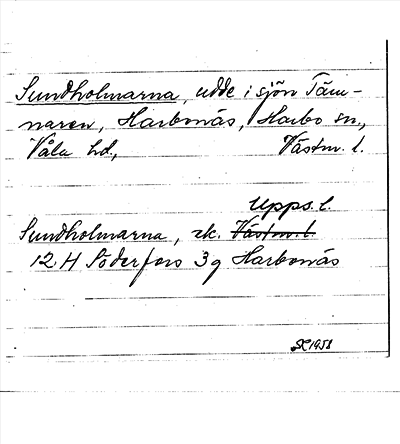 Sundholmarna, udde i sjön Täm-
naren, Harbonäs, Harbo sn,
Våla hd, Västm. l.
Upps. l.
Sundholmarna, ek. Västm. l.
12 H Söderfors 3g Harbonäs
1958